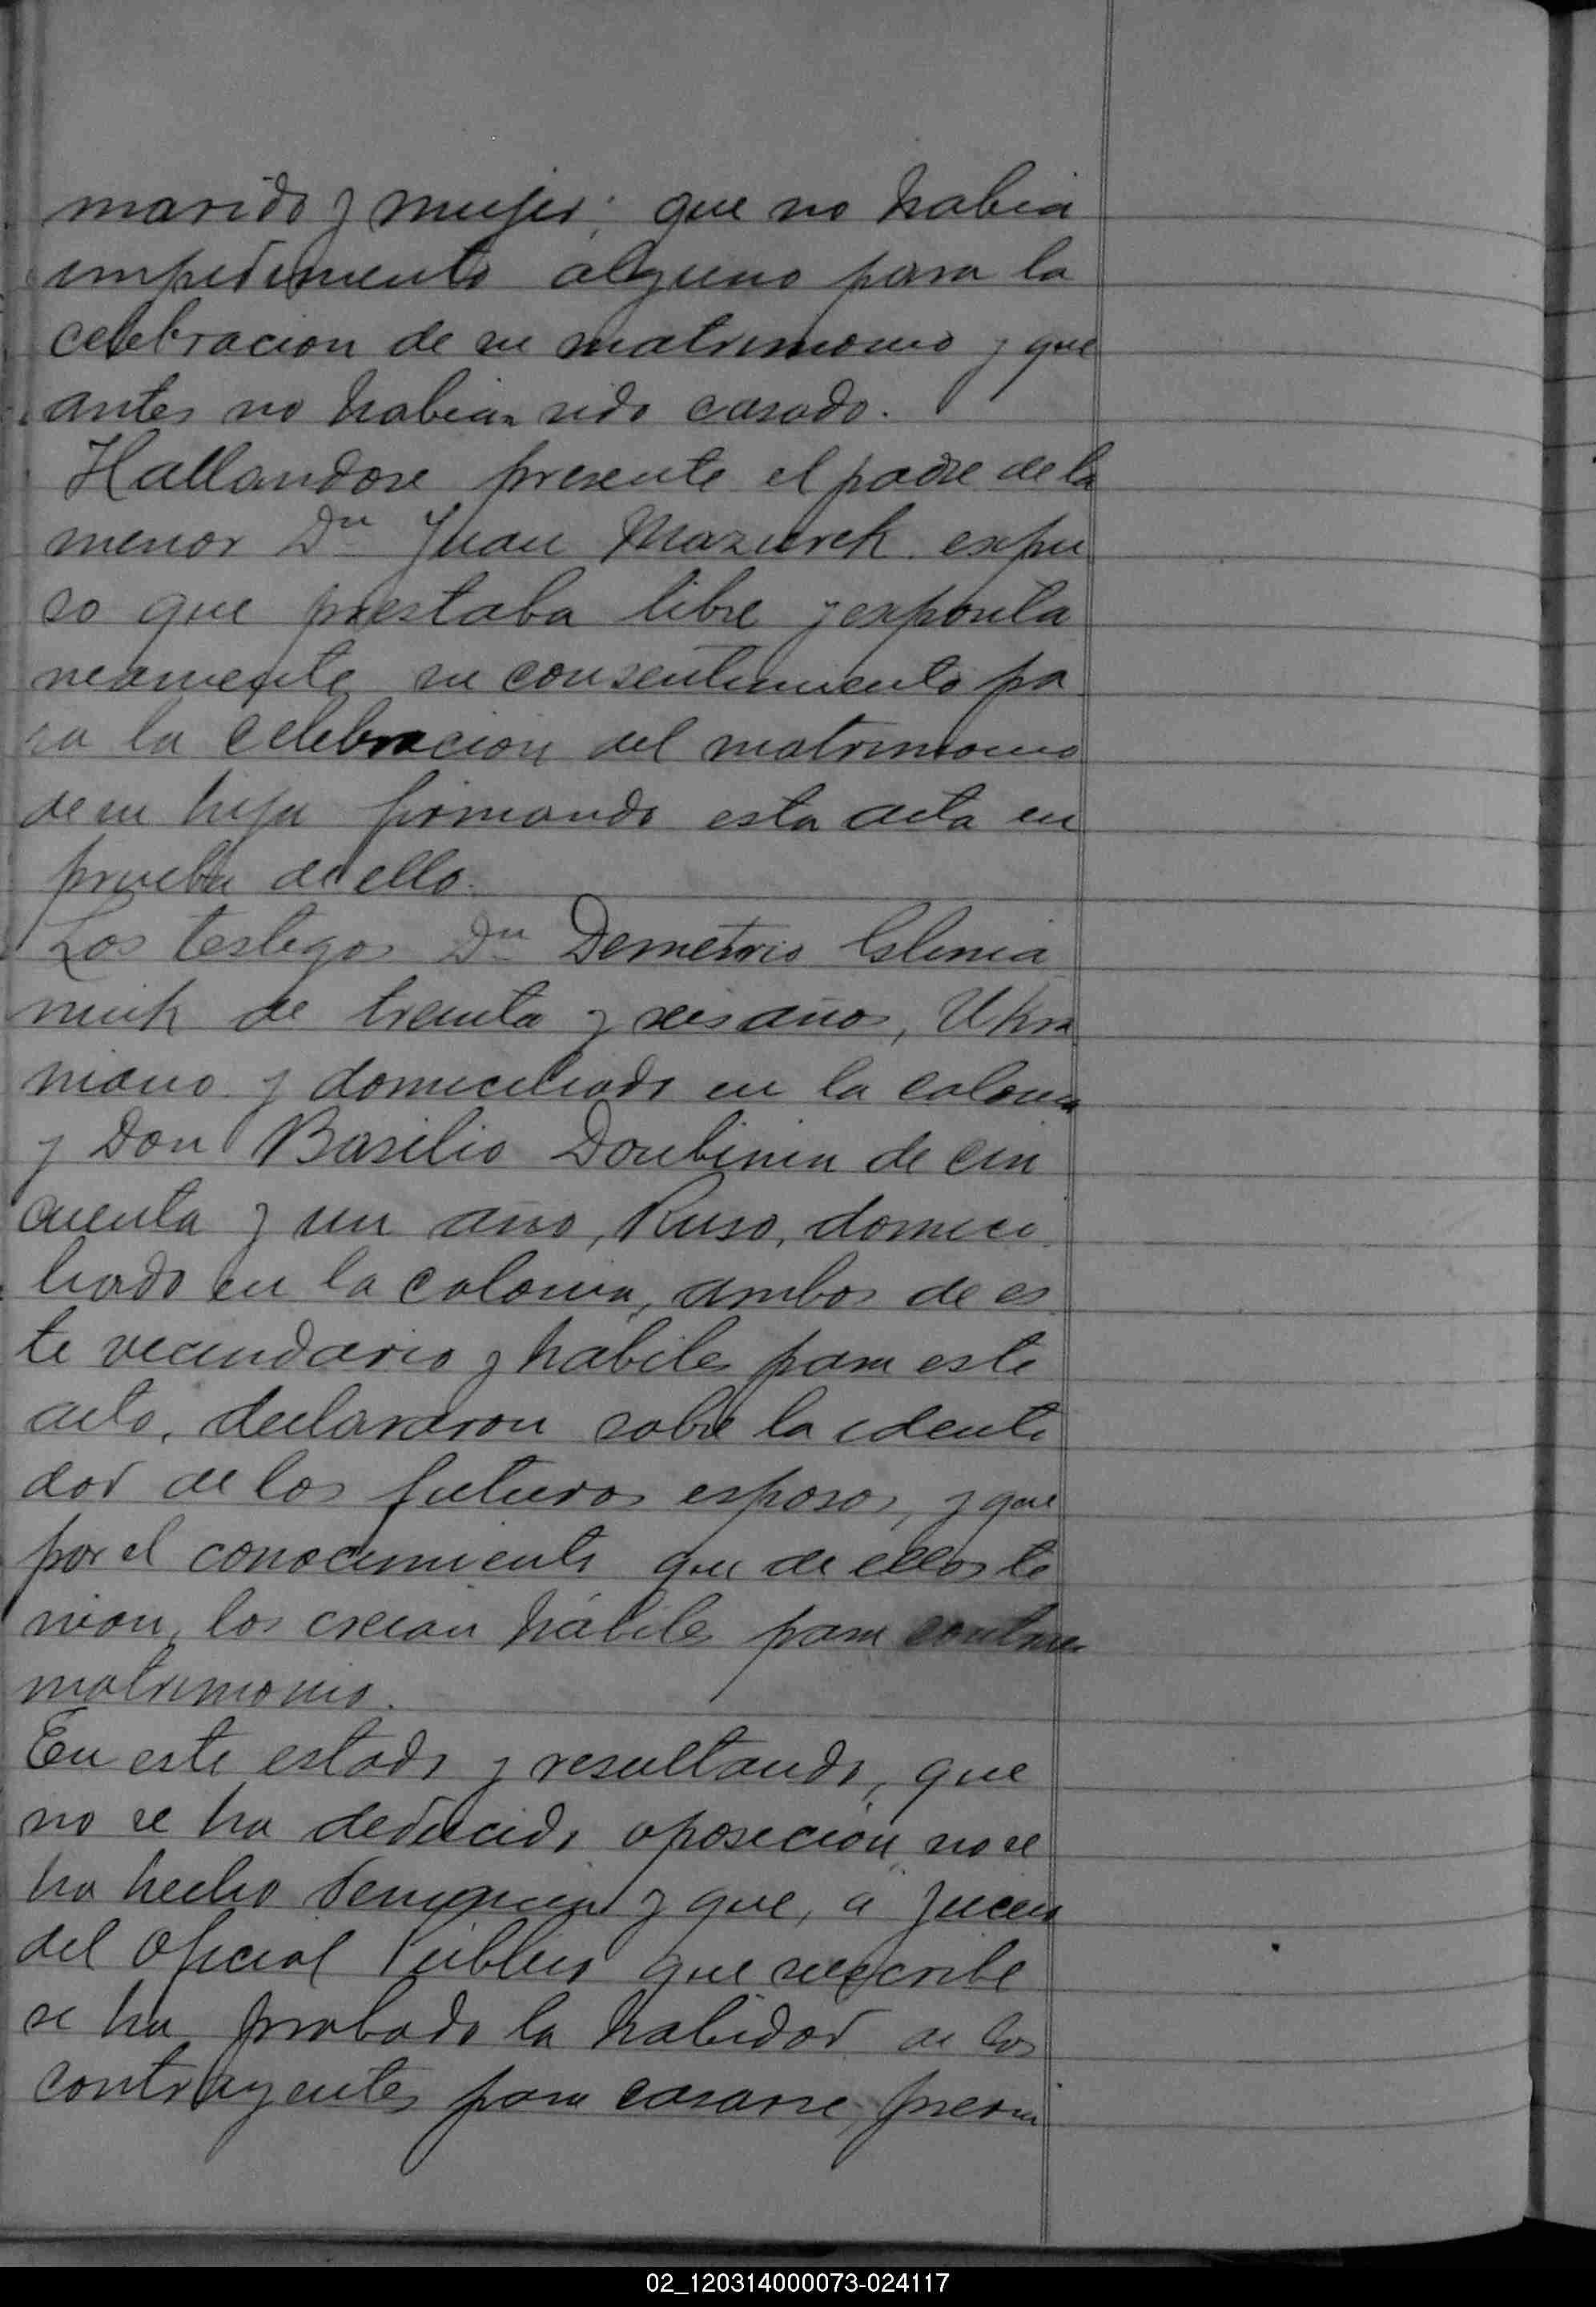 marido y mujer; que no habia
impedimento alguno para la
celebracion de su matrimonio y que
antes no habian sido casado.
Hallandose presente el padre de la
menor Dn Juan Mazurek expu
so que prestaba libre y exponta
neamente su consentimiento pa
ra la celebracion del matrimonio
de su hija firmando esta acta en
prueba de ello.
Los testigos Dn Demetrio
de treinta y seis años, Ukra
niano y domiciliado en la colonia
y Don Basilio Doubinin de cin
cuenta y un año, Ruso, domici
liado en la colonia, ambos de es
te vecindario y hábiles para este
acto, declararon sobre la identi
dad de los futuros esposos, y que
por el conocimiento que de ellos te
nian, los creian hábiles para contraer
matrimonio.
En este estado y resultando, que
no se ha deducido oposición, no se
ha hecho denuncia y que, a juicio
del Oficial Público que suscribe
se ha probado la habilidad de los
contrayentes para casarse,
02_120314000073-024117